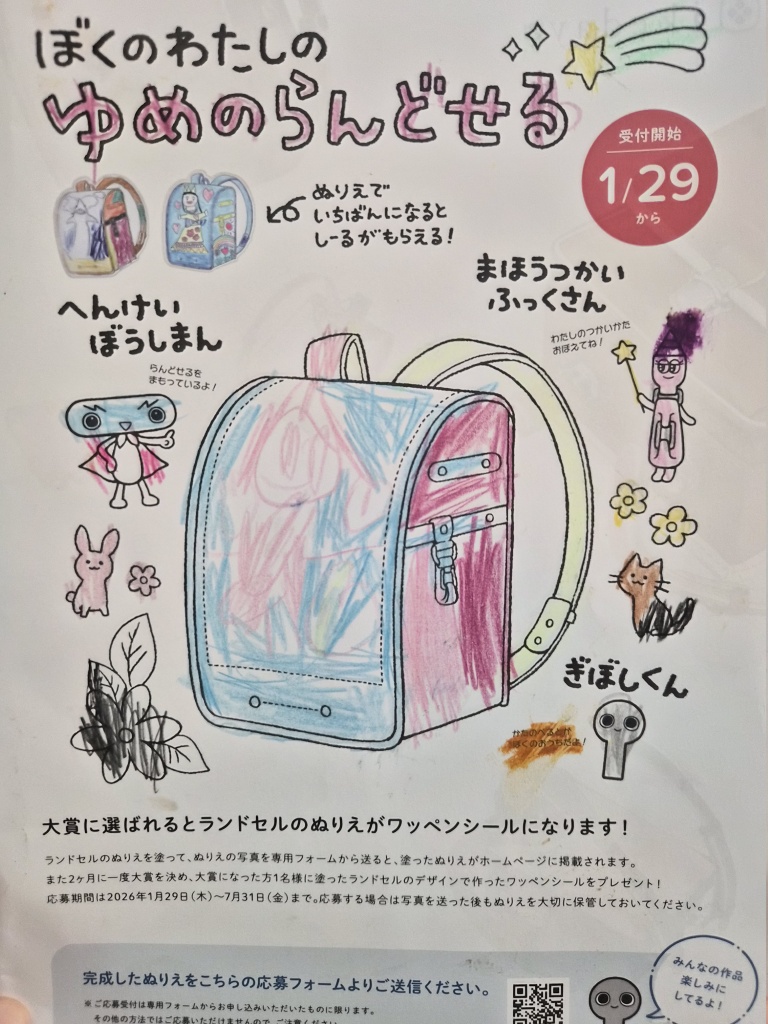 ぼくのわたしの
ゆめのらんどせる
受付開始
1/29
から
ぬりえで
いちばんになると
しーるがもらえる!
まほうつかい
ふっくさん
わたしのつかいかた
おぼえてね!
へんけい
ぼうしまん
らんどせるを
まもっているよ!
ぎぼしくん
かたのべるとが
ぼくのおうちだよ!
大賞に選ばれるとランドセルのぬりえがワッペンシールになります!
ランドセルのぬりえを塗って、ぬりえの写真を専用フォームから送ると、塗ったぬりえがホームページに掲載されます。
また2ヶ月に一度大賞を決め、大賞になった方1名様に塗ったランドセルのデザインで作ったワッペンシールをプレゼント!
応募期間は2026年1月29日(木)~7月31日(金)まで。応募する場合は写真を送った後もぬりえを大切に保管しておいてください。
完成したぬりえをこちらの応募フォームよりご送信ください。
※ご応募受付は専用フォームからお申し込みいただいたものに限ります。
その他の方法ではご応募いただけませんので、ご注意ください。
みんなの作品
楽しみに
してるよ!